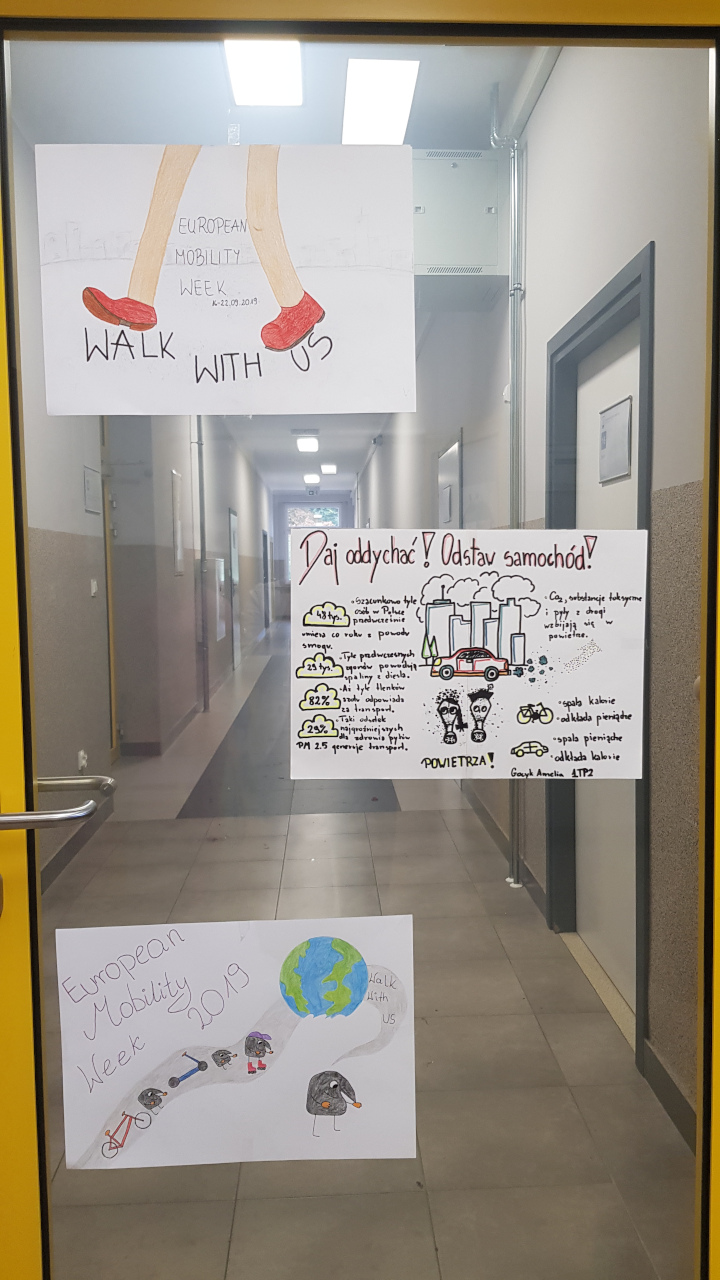 EUROPEAN
MOBILITY
WEEK
16-22.09.2019
WALK WITH US
Daj oddychać! Odstaw samochód!
48 tys.
• Szacunkowo tyle
osób w Polsce
przedwcześnie
umiera co roku z powodu
smogu.
• Tyle przedwczesnych
zgonów powodują
spaliny z diesla.
82%
• Aż tyle tlenków
azotu odpowiada
za transport.
• Taki odsetek
najgroźniejszych
dla zdrowia pyłów
PM 2.5 generuje transport.
• CO2, substancje toksyczne
i pyły z drogi
wzbijają się w
powietrze.
• spala kalorie
• odkłada pieniądze
• spala pieniądze
• odkłada kalorie
POWIETRZA!
Amelia 1TP2
European
Mobility
Week 2019
Walk
With
US